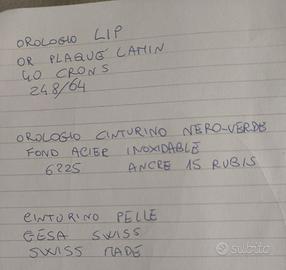 OROLOGIO LIP
OR PLAQUÉ LAMIN
40 CRONS
248/64
OROLOGIO CINTURINO NERO-VERDE
FOND ACIER INOXIDABLE
6225 ANCRE 15 RUBIS
CINTURINO PELLE
GESA SWISS
SWISS MADE
subito